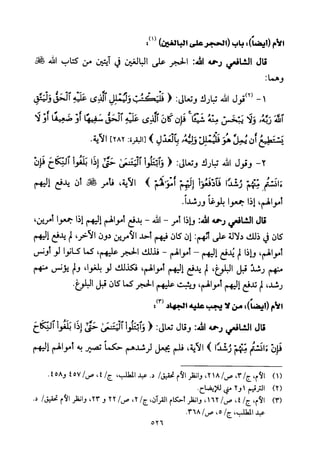 الأم (أيضاً)، باب (الحجر على البالغين) (١):
قال الشافعي رحمه الله: الحجر على البالغين في آيتين من كتاب الله ﷻ
وهما:
١- (٢) قول الله تبارك وتعالى: ﴿ فَلْيَكْتُبْ وَلْيُمْلِلِ الَّذِي عَلَيْهِ الْحَقُّ وَلْيَتَّقِ
اللَّهَ رَبَّهُ وَلَا يَبْخَسْ مِنْهُ شَيْئًا فَإِن كَانَ الَّذِي عَلَيْهِ الْحَقُّ سَفِيهًا أَوْ ضَعِيفًا أَوْ لَا
يَسْتَطِيعُ أَن يُمِلَّ هُوَ فَلْيُمْلِلْ وَلِيُّهُ بِالْعَدْلِ ﴾ [البقرة: ٢٨٢] الآية.
٢- وقول الله تبارك وتعالى: ﴿ وَابْتَلُوا الْيَتَامَى حَتَّى إِذَا بَلَغُوا النِّكَاحَ فَإِنْ
آنَسْتُم مِّنْهُمْ رُشْدًا فَادْفَعُوا إِلَيْهِمْ أَمْوَالَهُمْ ﴾ الآية، فأمر ﷻ أن يدفع إليهم
أموالهم، إذا جمعوا بلوغاً ورشداً.
قال الشافعي رحمه الله: وإذا أمر - الله - بدفع أموالهم إليهم إذا جمعوا أمرين،
كان في ذلك دلالة على أنهم: إن كان فيهم أحد الأمرين دون الآخر، لم يدفع إليهم
أموالهم، وإذا لم يُدفع إليهم - أموالهم - فذلك الحجر عليهم، كما كانوا لو أونس
منهم رشدٌ قبل البلوغ، لم يدفع إليهم أموالهم، فكذلك لو بلغوا، ولم يؤنس منهم
رشد، لم تدفع إليهم أموالهم، ويثبت عليهم الحجر كما كان قبل البلوغ.
الأم (أيضاً)، من لا يجب عليه الجهاد (٣):
قال الشافعي رحمه الله: وقال تعالى: ﴿ وَابْتَلُوا الْيَتَامَى حَتَّى إِذَا بَلَغُوا النِّكَاحَ
فَإِنْ آنَسْتُم مِّنْهُمْ رُشْدًا ﴾ الآية، فلم يجعل لرشدهم حكماً تصير به أموالهم إليهم
(١) الأم، ج/٣، ص/٢١٨، وانظر الأم تحقيق/ د. عبد المطلب، ج/٤، ص/٤٥٧ و٤٥٨.
(٢) الترقيم ١و٢ مني للإيضاح.
(٣) الأم، ج/٤، ص/١٦٢، وانظر أحكام القرآن، ج/٢، ص/٢٢ و٢٣، وانظر الأم تحقيق/ د.
عبد المطلب، ج/٥، ص/٣٦٨.
٥٢٦